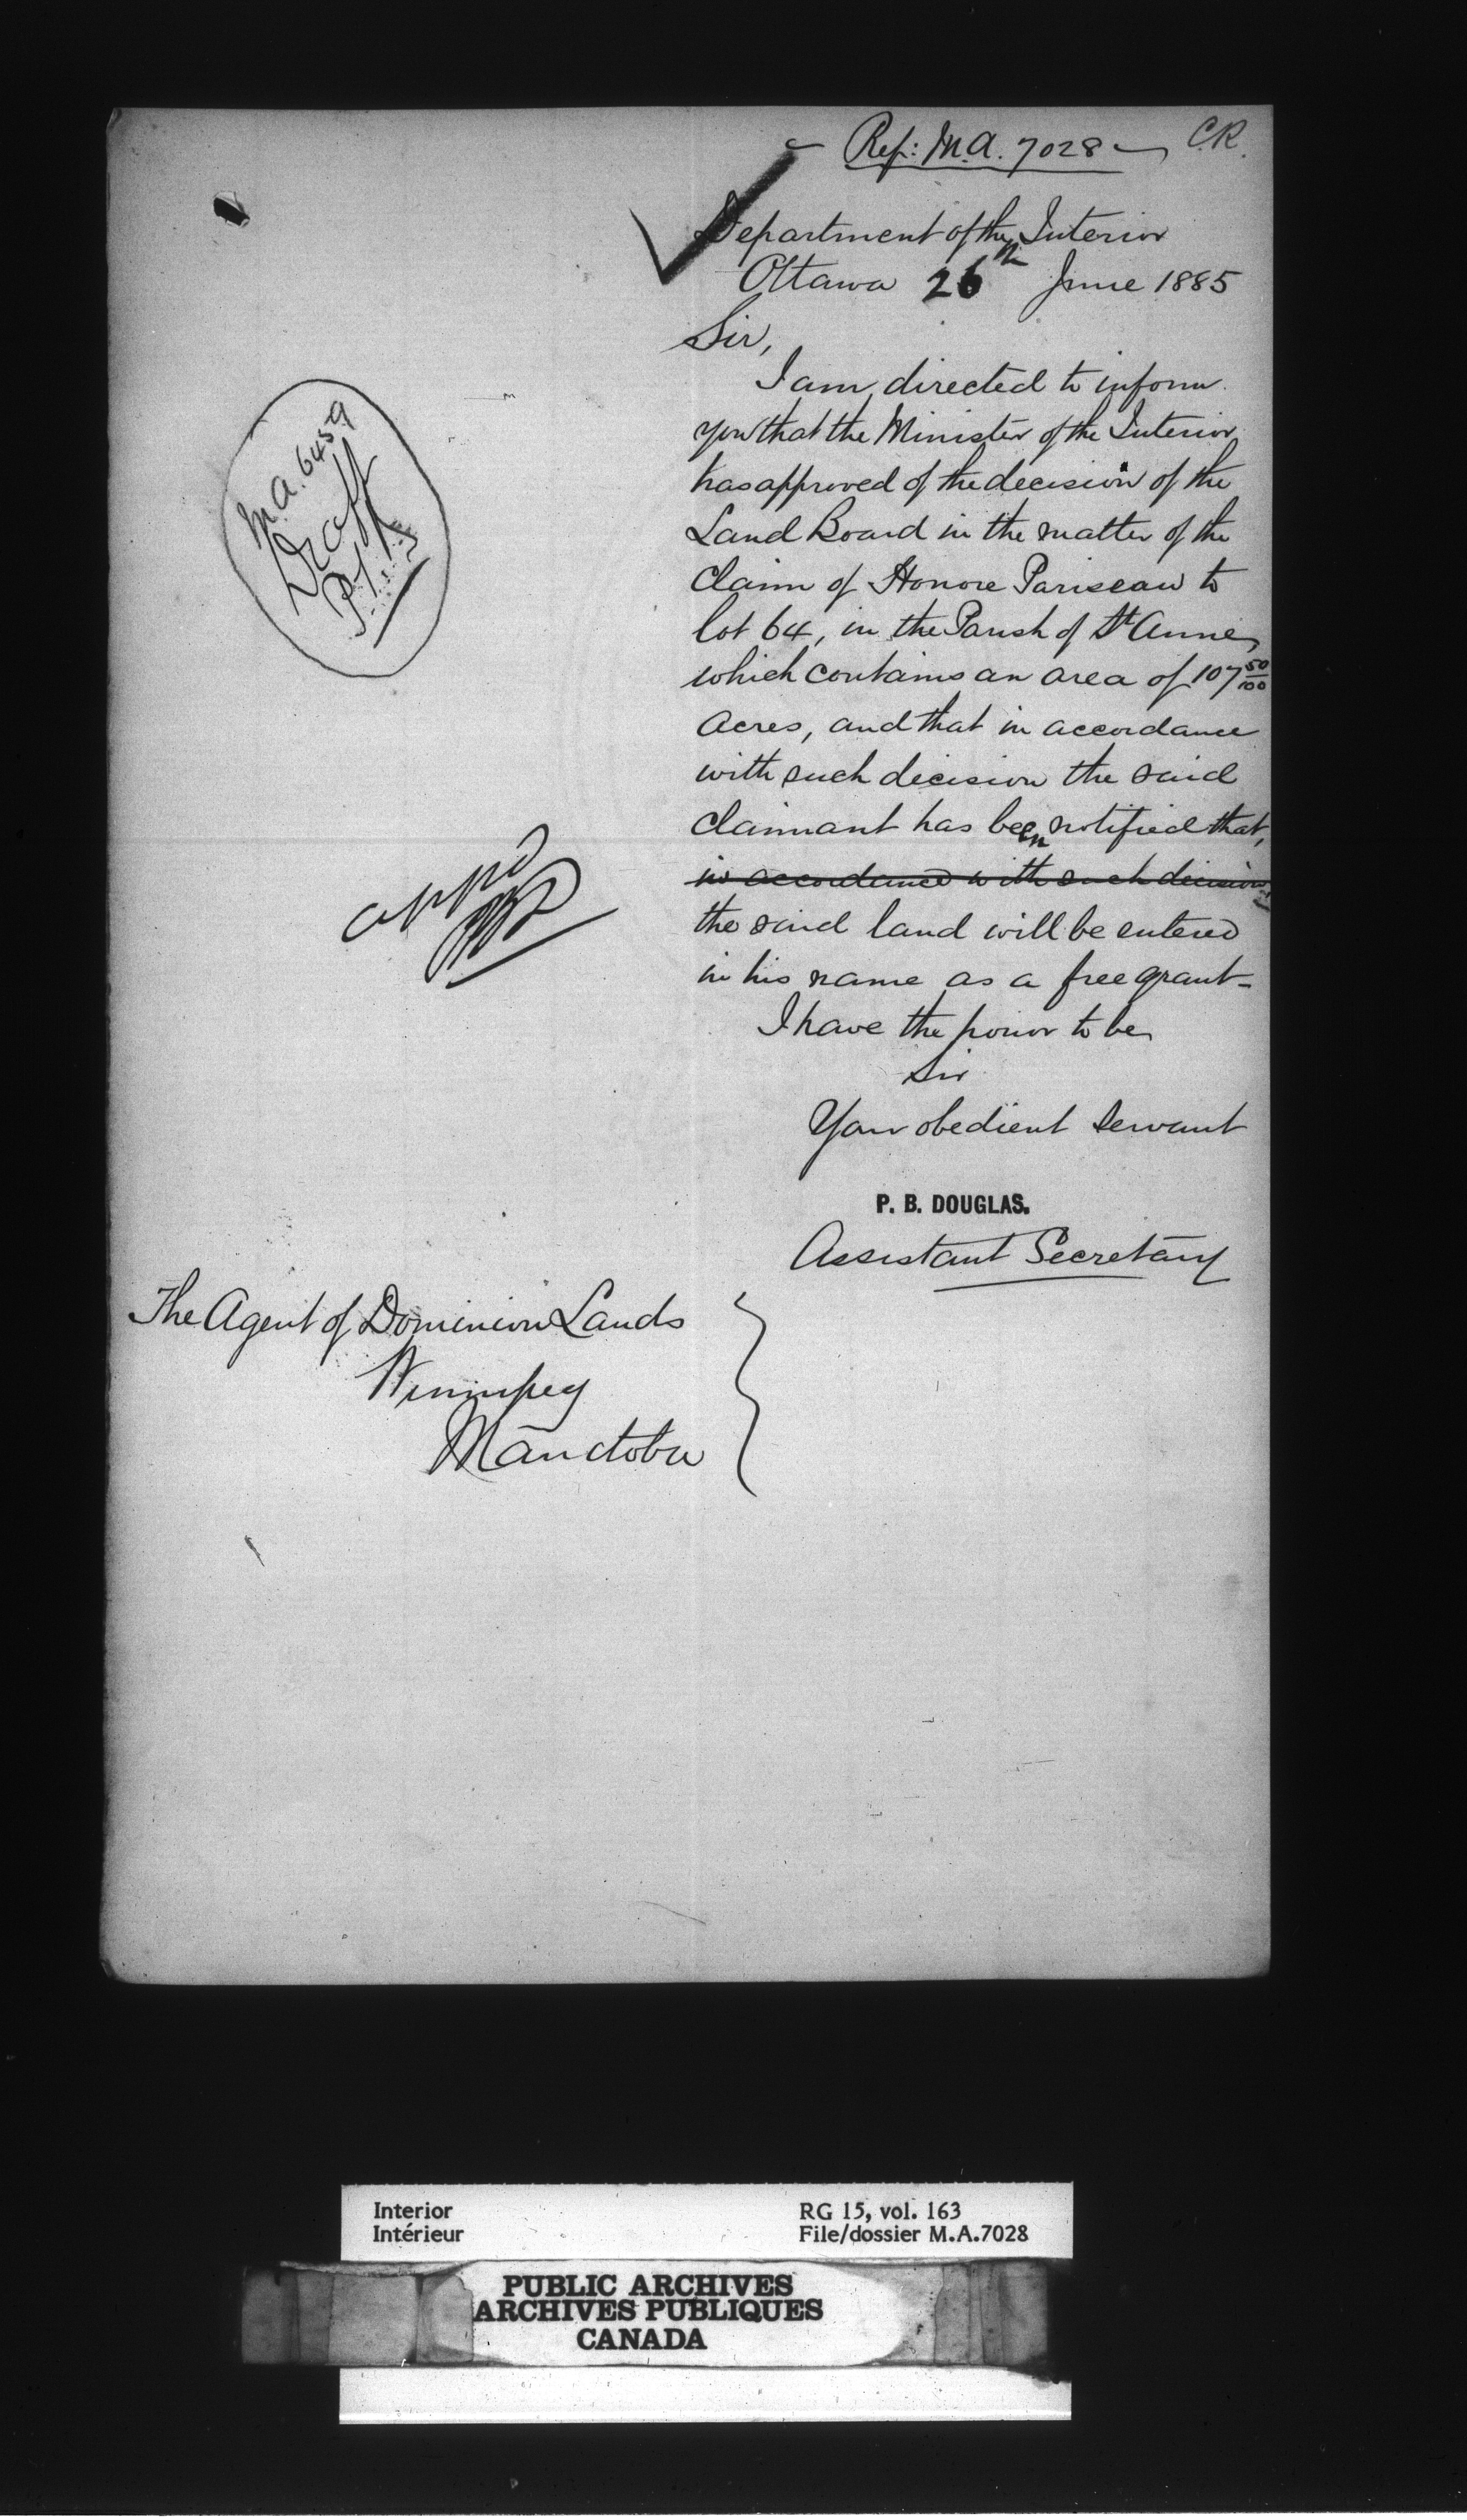 Ref: M.A. 7028
C.R.
Department of the Interior
Ottawa 26th June 1885
Sir,
I am directed to inform
you that the Minister of the Interior
has approved of the decision of the
Land Board in the matter of the
Claim of Honore Pariseau to
lot 64, in the Parish of St Anne,
which contains an area of 107 50/100
Acres, and that in accordance
with such decision the said
claimant has been notified that,
in accordance with such decision
the said land will be entered
in his name as a free grant-
I have the honor to be
Sir
Your obedient Servant
P. B. DOUGLAS.
Assistant Secretary
M.A. 6459
Draft
appd
The Agent of Dominion Lands
Winnipeg
Manitoba
Interior
Intérieur
RG 15, vol. 163
File/dossier M.A.7028
PUBLIC ARCHIVES
ARCHIVES PUBLIQUES
CANADA